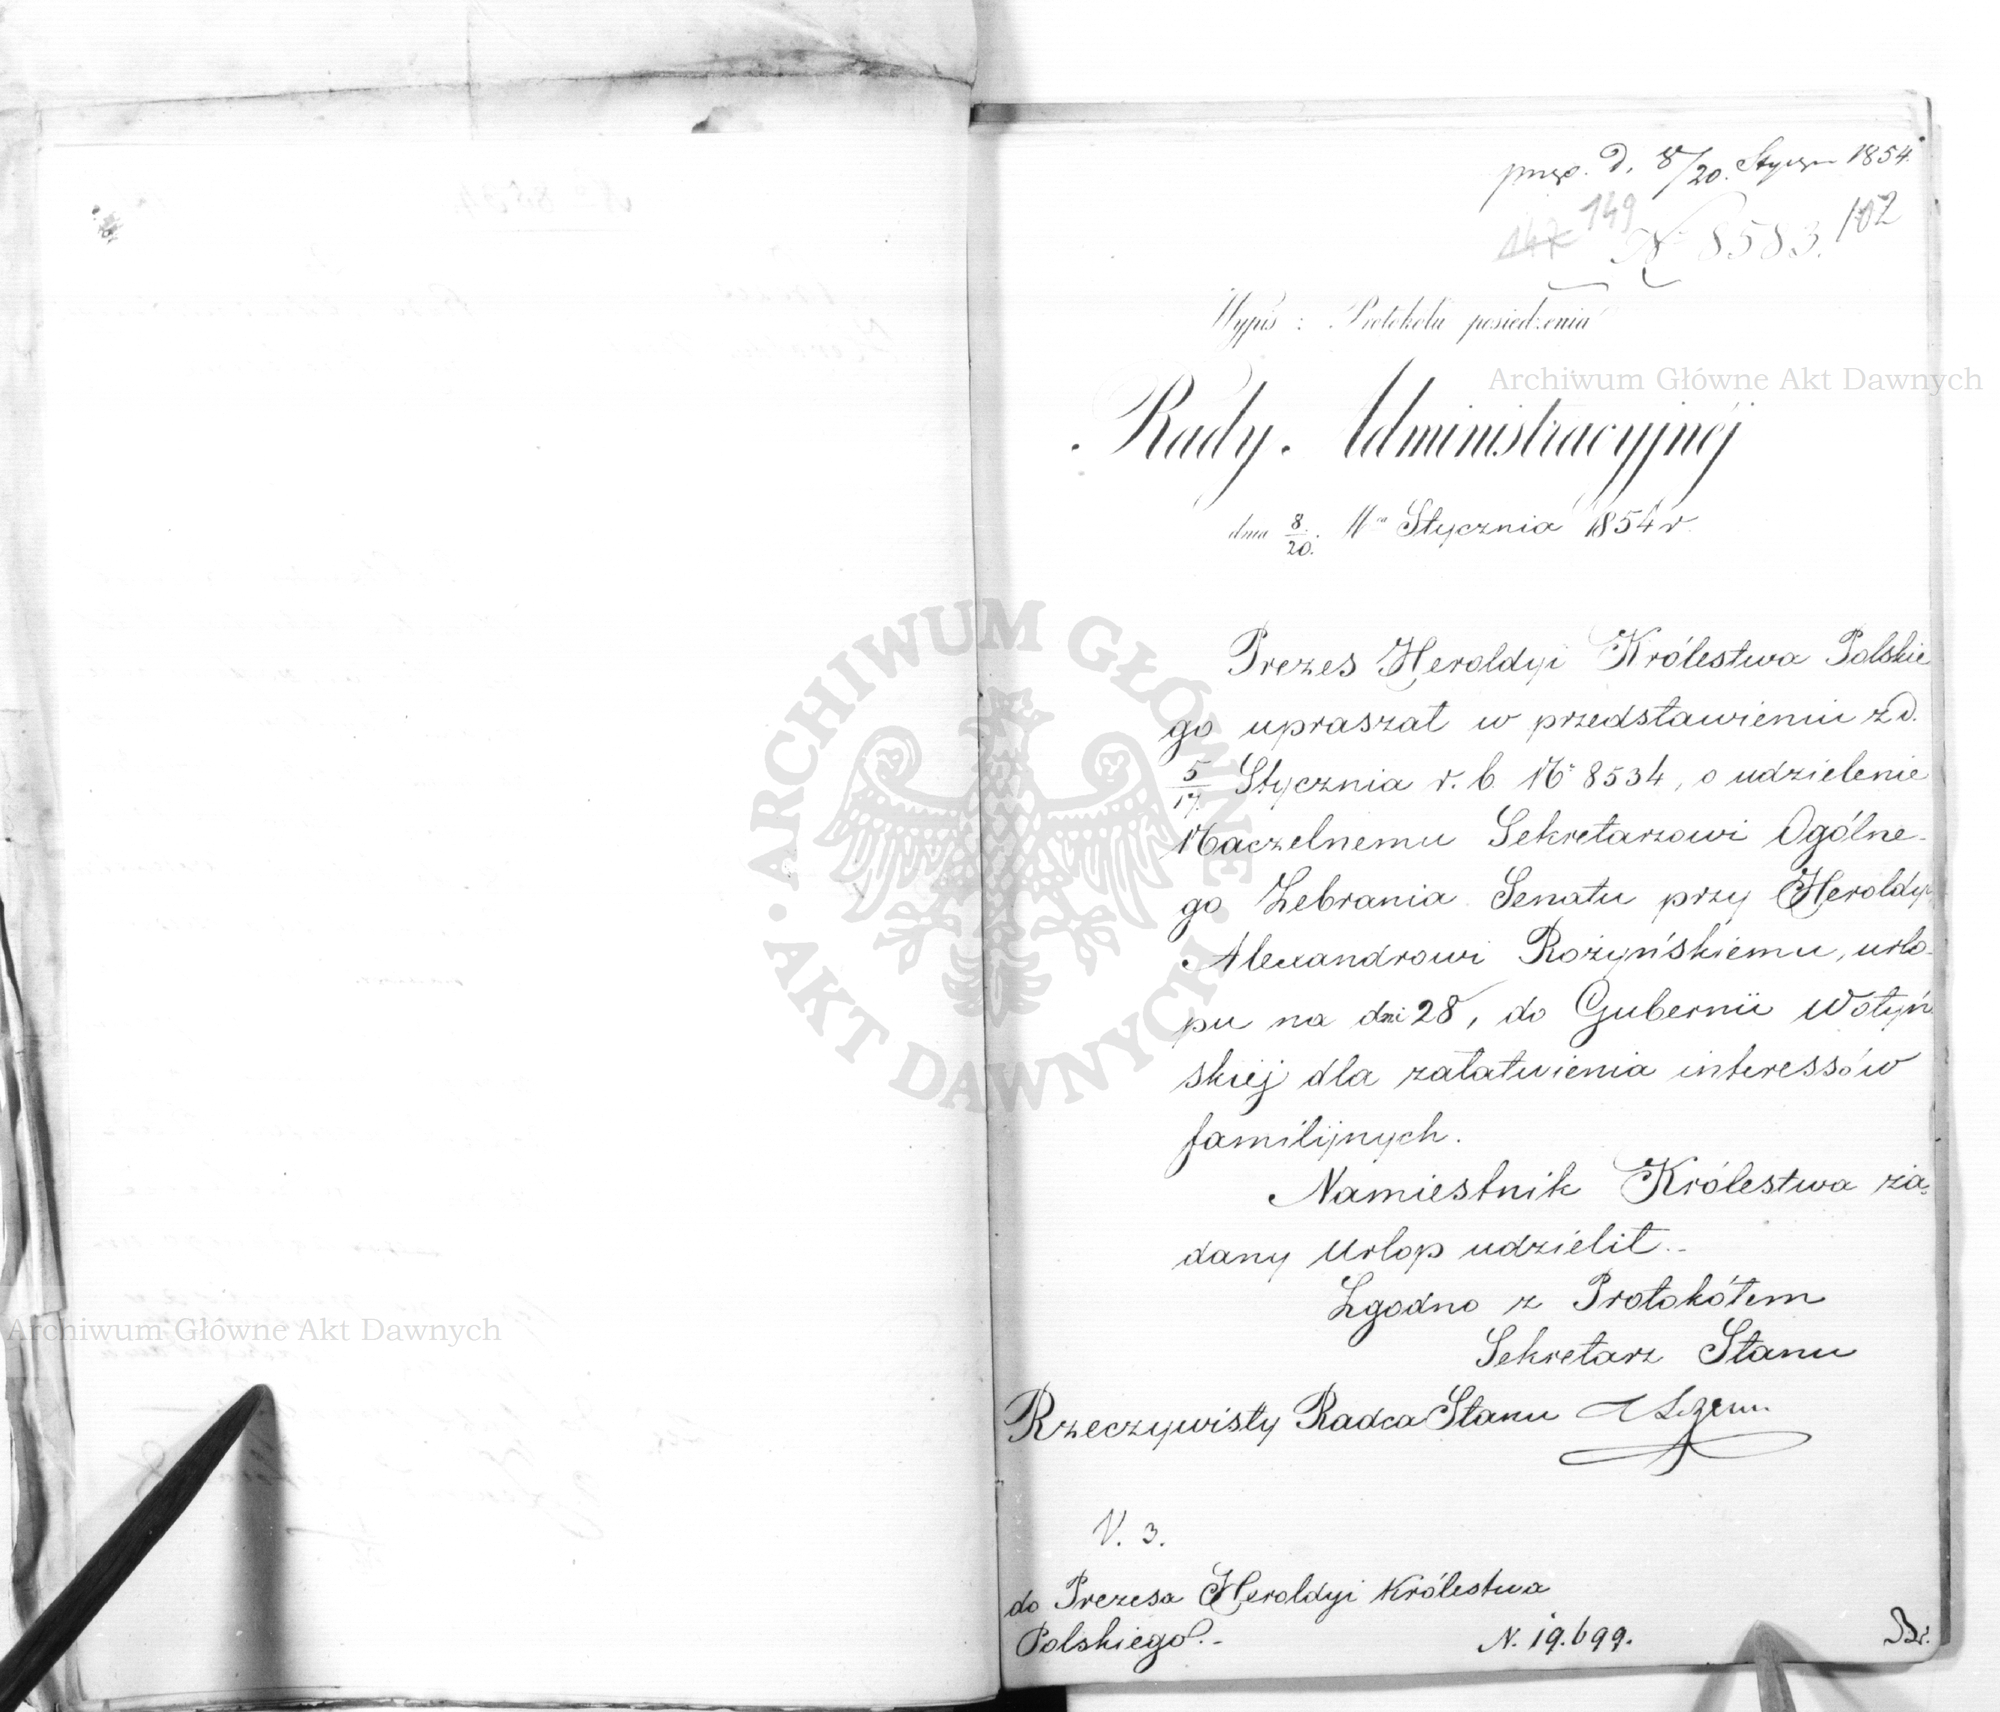 d. 8/20. Stycz 1854.
147 149 № 8583. 102
Wypis z Protokułu posiedzenia
Rady Administracyjnéj
Archiwum Główne Akt Dawnych
dnia 8/20. Mca Stycznia 1854 r.
Prezes Heroldyi Królestwa Polskie
go upraszał w przedstawieniu z d.
5/17. Stycznia r. b. № 8534, o udzielenie
Naczelnemu Sekretarzowi Ogólne-
go Zebrania Senatu przy Heroldyi
Alexandrowi Rożyńskiemu, urlo-
pu na dni 28, do Gubernii Wołyń
skiej dla załatwienia interessów
familijnych.
Namiestnik Królestwa żą-
dany Urlop udzielił.-
Zgodno z Protokółem
Sekretarz Stanu
Rzeczywisty Radca Stanu
V. 3.
do Prezesa Heroldyi Królestwa
Polskiego.-
N. 19.699.
Br.
ARCHIWUM GŁÓWNE · AKT DAWNYCH ·
Archiwum Główne Akt Dawnych